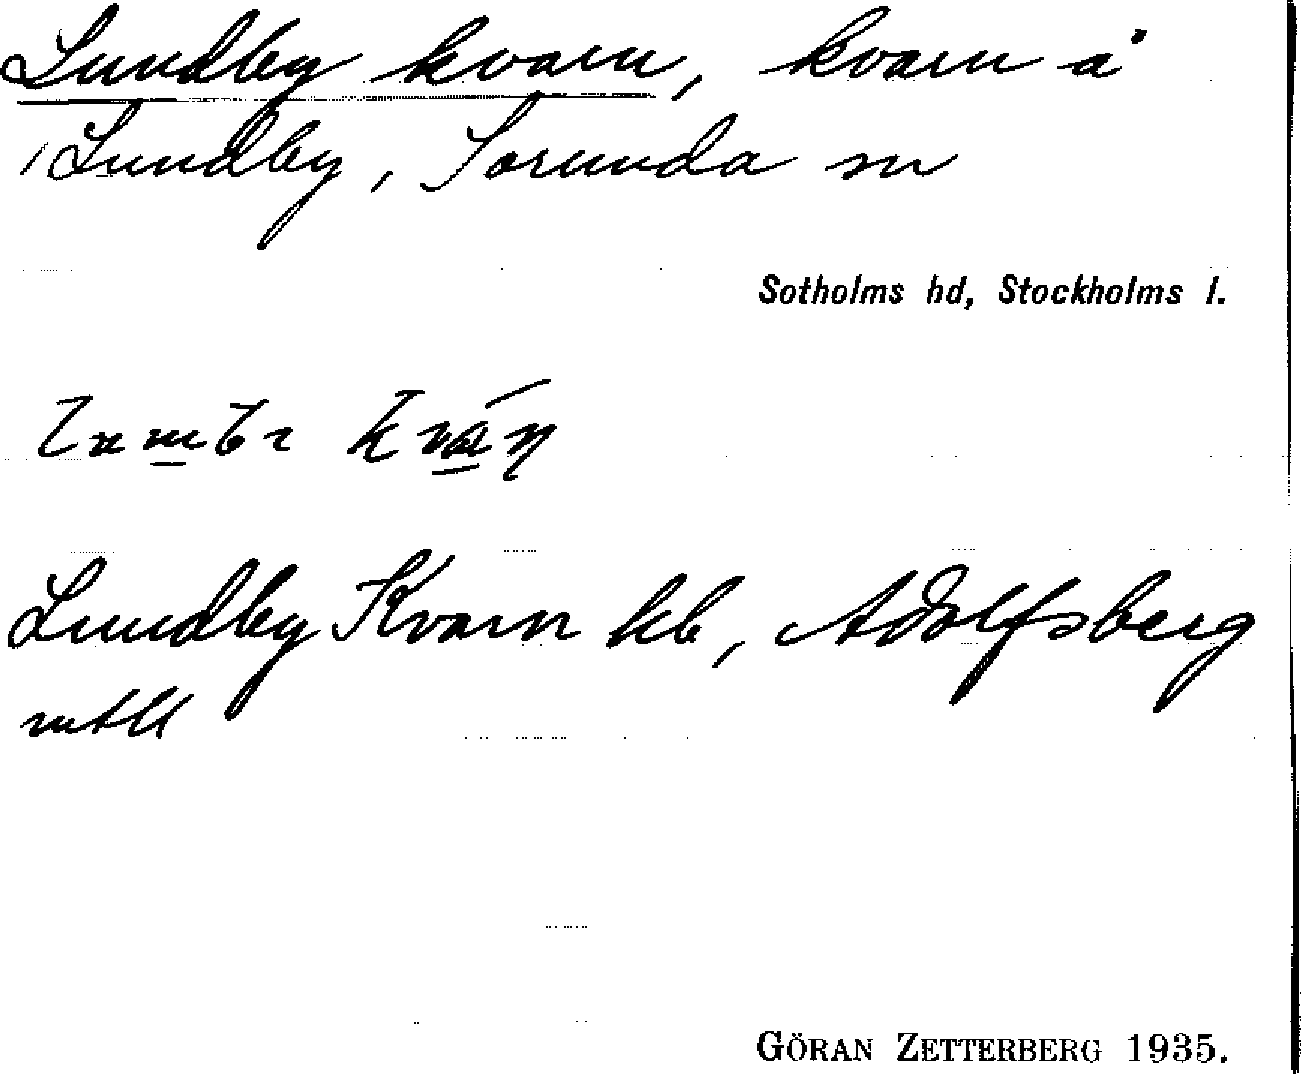 Lundby kvarn, kvarn å
Lundby, Sorunda sn
Sotholms hd, Stockholms l.
Lundby Kvarn hb, Adolfsberg
GÖRAN ZETTERBERG 1935.